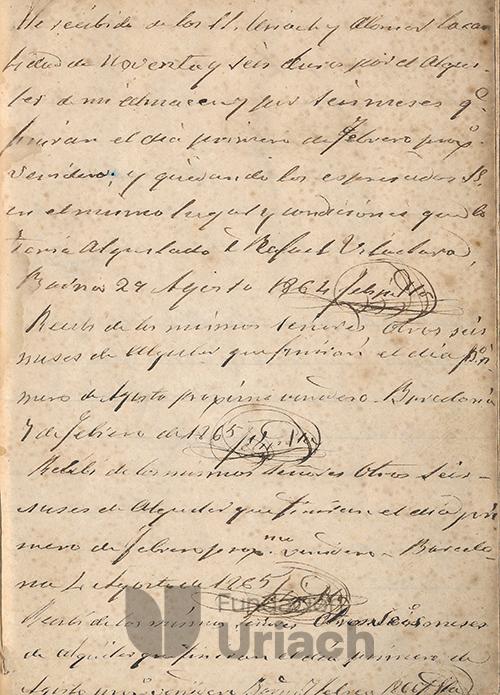 He recibido de los SS. Uriach y Alomar la can
tidad de noventa y seis duros por el Alqui
ler de mi Almacen y por seis meses qe.
finirán el dia primero de Febrero proxo.
venidero, y quedando los espresados SS.
en el mismo lugar y condiciones que lo
tenia Alquilado D. Rafael Vilaclara.
Barna 29 Agosto 1864
Recibi de los mismos Señores Otros seis
meses de Alquiler que finirán el dia pri
mero de Agosto proximo venidero - Barcelona
7 de febrero de 1865
Recibi de los mismos Señores Otros seis
meses de Alquiler que finiran el dia pri
mero de febrero proxmo. venidero - Barcelo
na 4 Agosto de 1865
Recibi de los mismos Señores Otros seis meses
de alquiler que finiran el dia primero de
Agosto
Fundación
Uriach